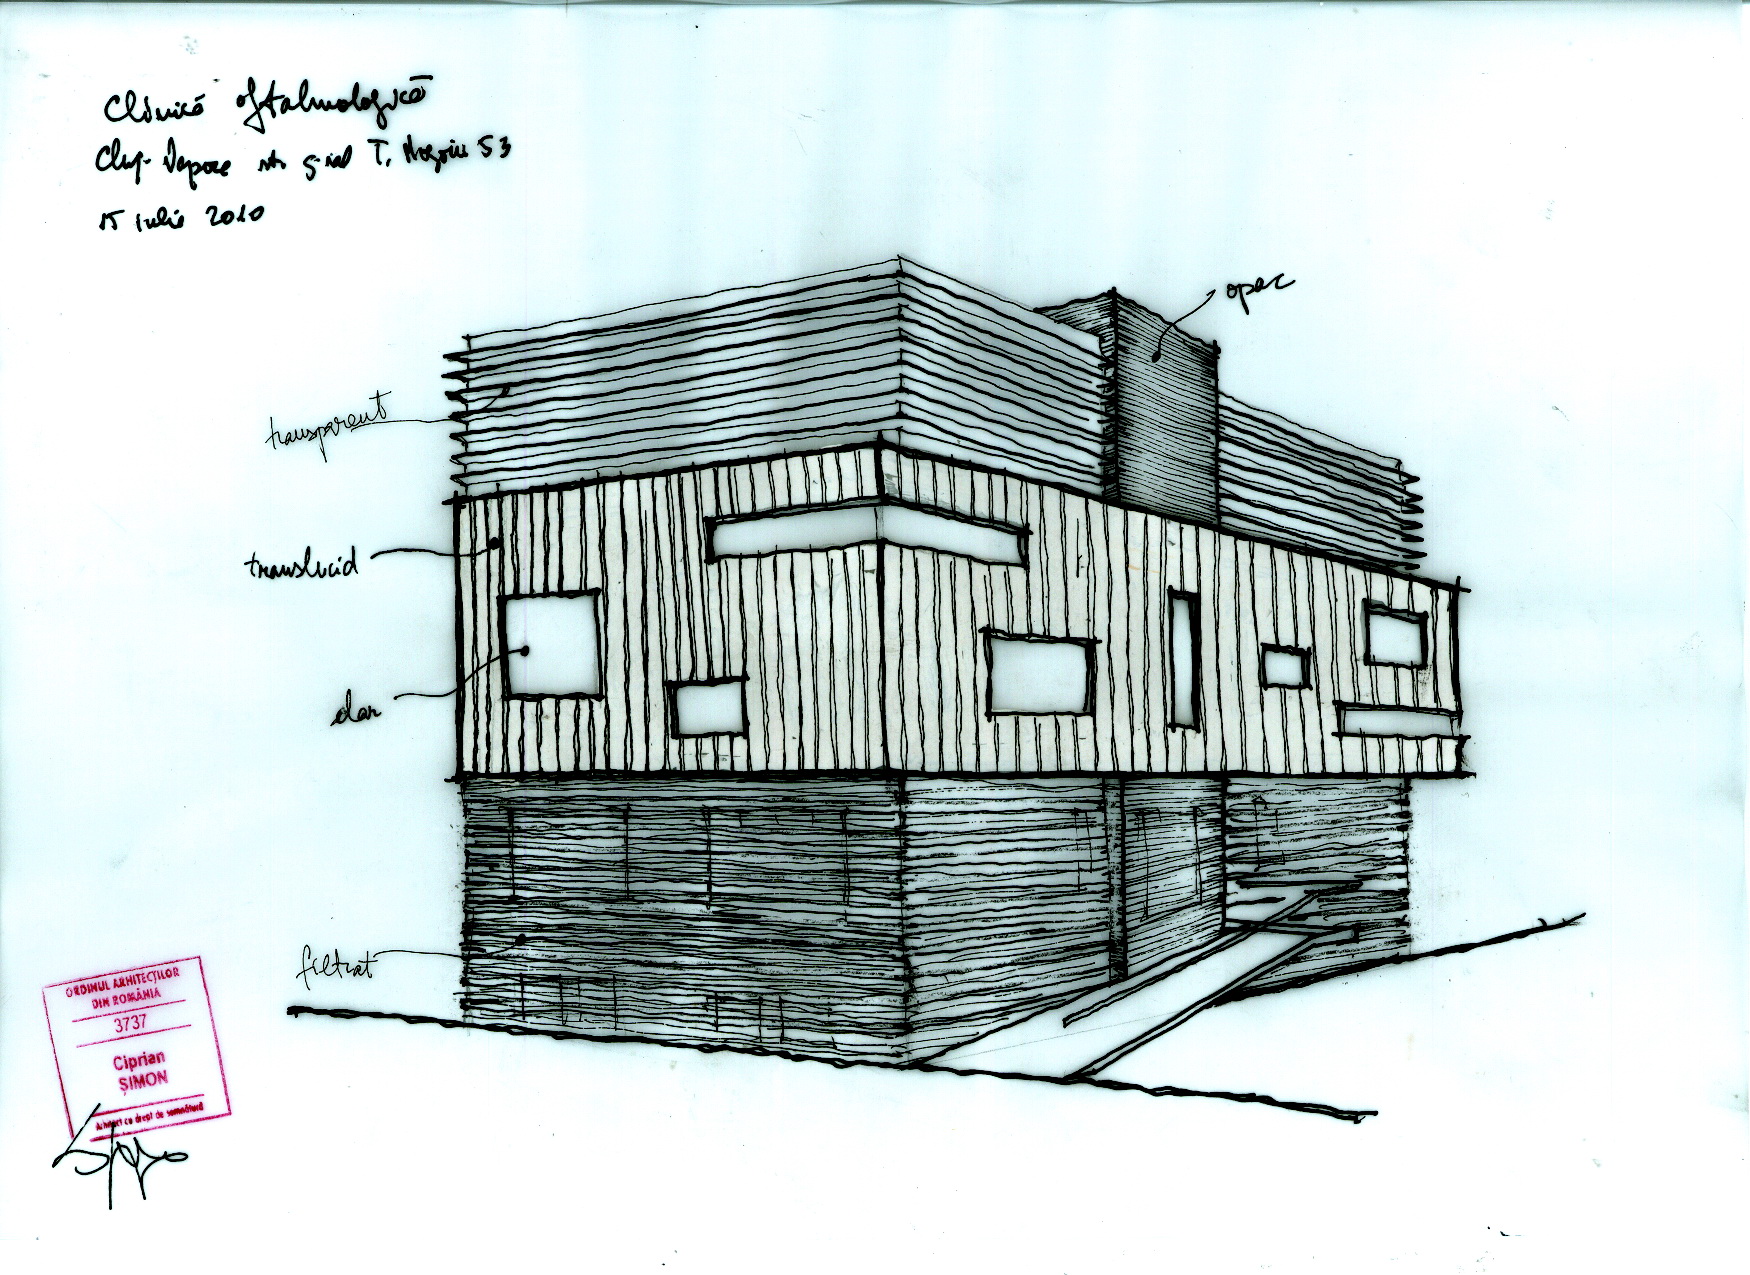 Clinică oftalmologică
Cluj-Napoca str g-ral T. Moșoiu 53
15 iulie 2010
opac
transparent
translucid
clar
filtrat
ORDINUL ARHITECȚILOR
DIN ROMÂNIA
3737
Ciprian
ȘIMON
Arhitect cu drept de semnătură